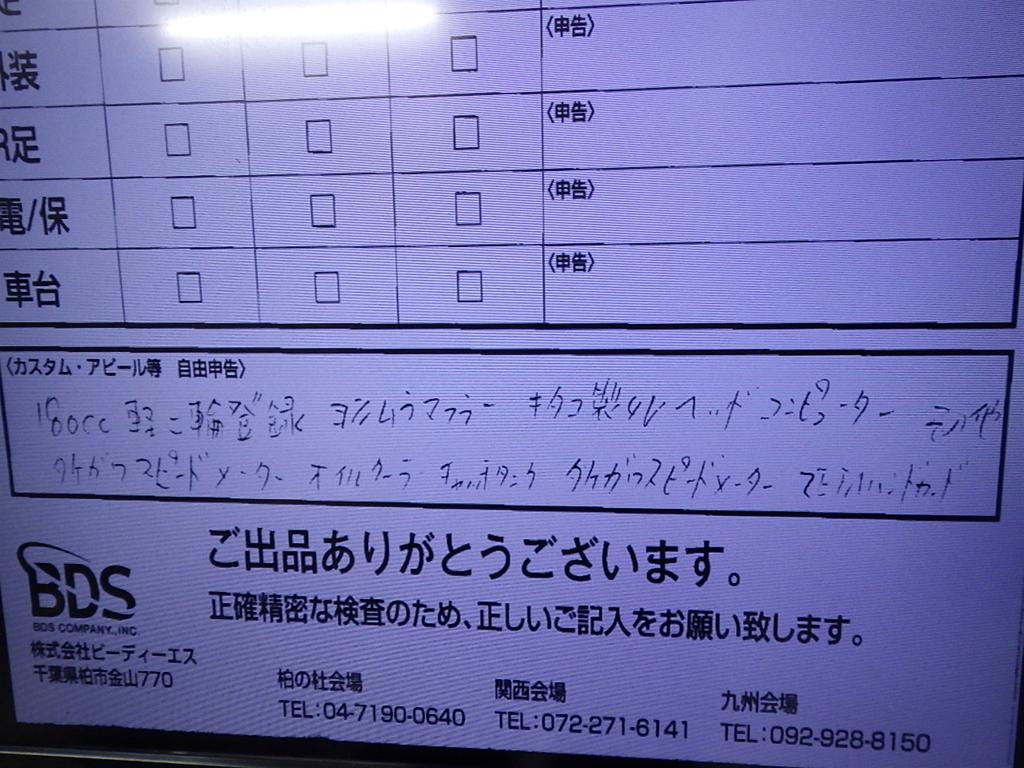 〈申告〉
外装 □ □ □
〈申告〉
R足 □ □ □
〈申告〉
電/保 □ □ □
〈申告〉
車台 □ □ □
〈カスタム・アピール等 自由申告〉
180cc 軽二輪登録 ヨシムラマフラー キタコ製4Vヘッド コンピューター
タケガワスピードメーター オイルクーラー キャッチタンク タケガワスピードメーター ハンドガード
ご出品ありがとうございます。
正確精密な検査のため、正しいご記入をお願い致します。
BDS
BDS COMPANY.,INC.
株式会社ビーディーエス
千葉県柏市金山770
柏の杜会場
TEL:04-7190-0640
関西会場
TEL:072-271-6141
九州会場
TEL:092-928-8150